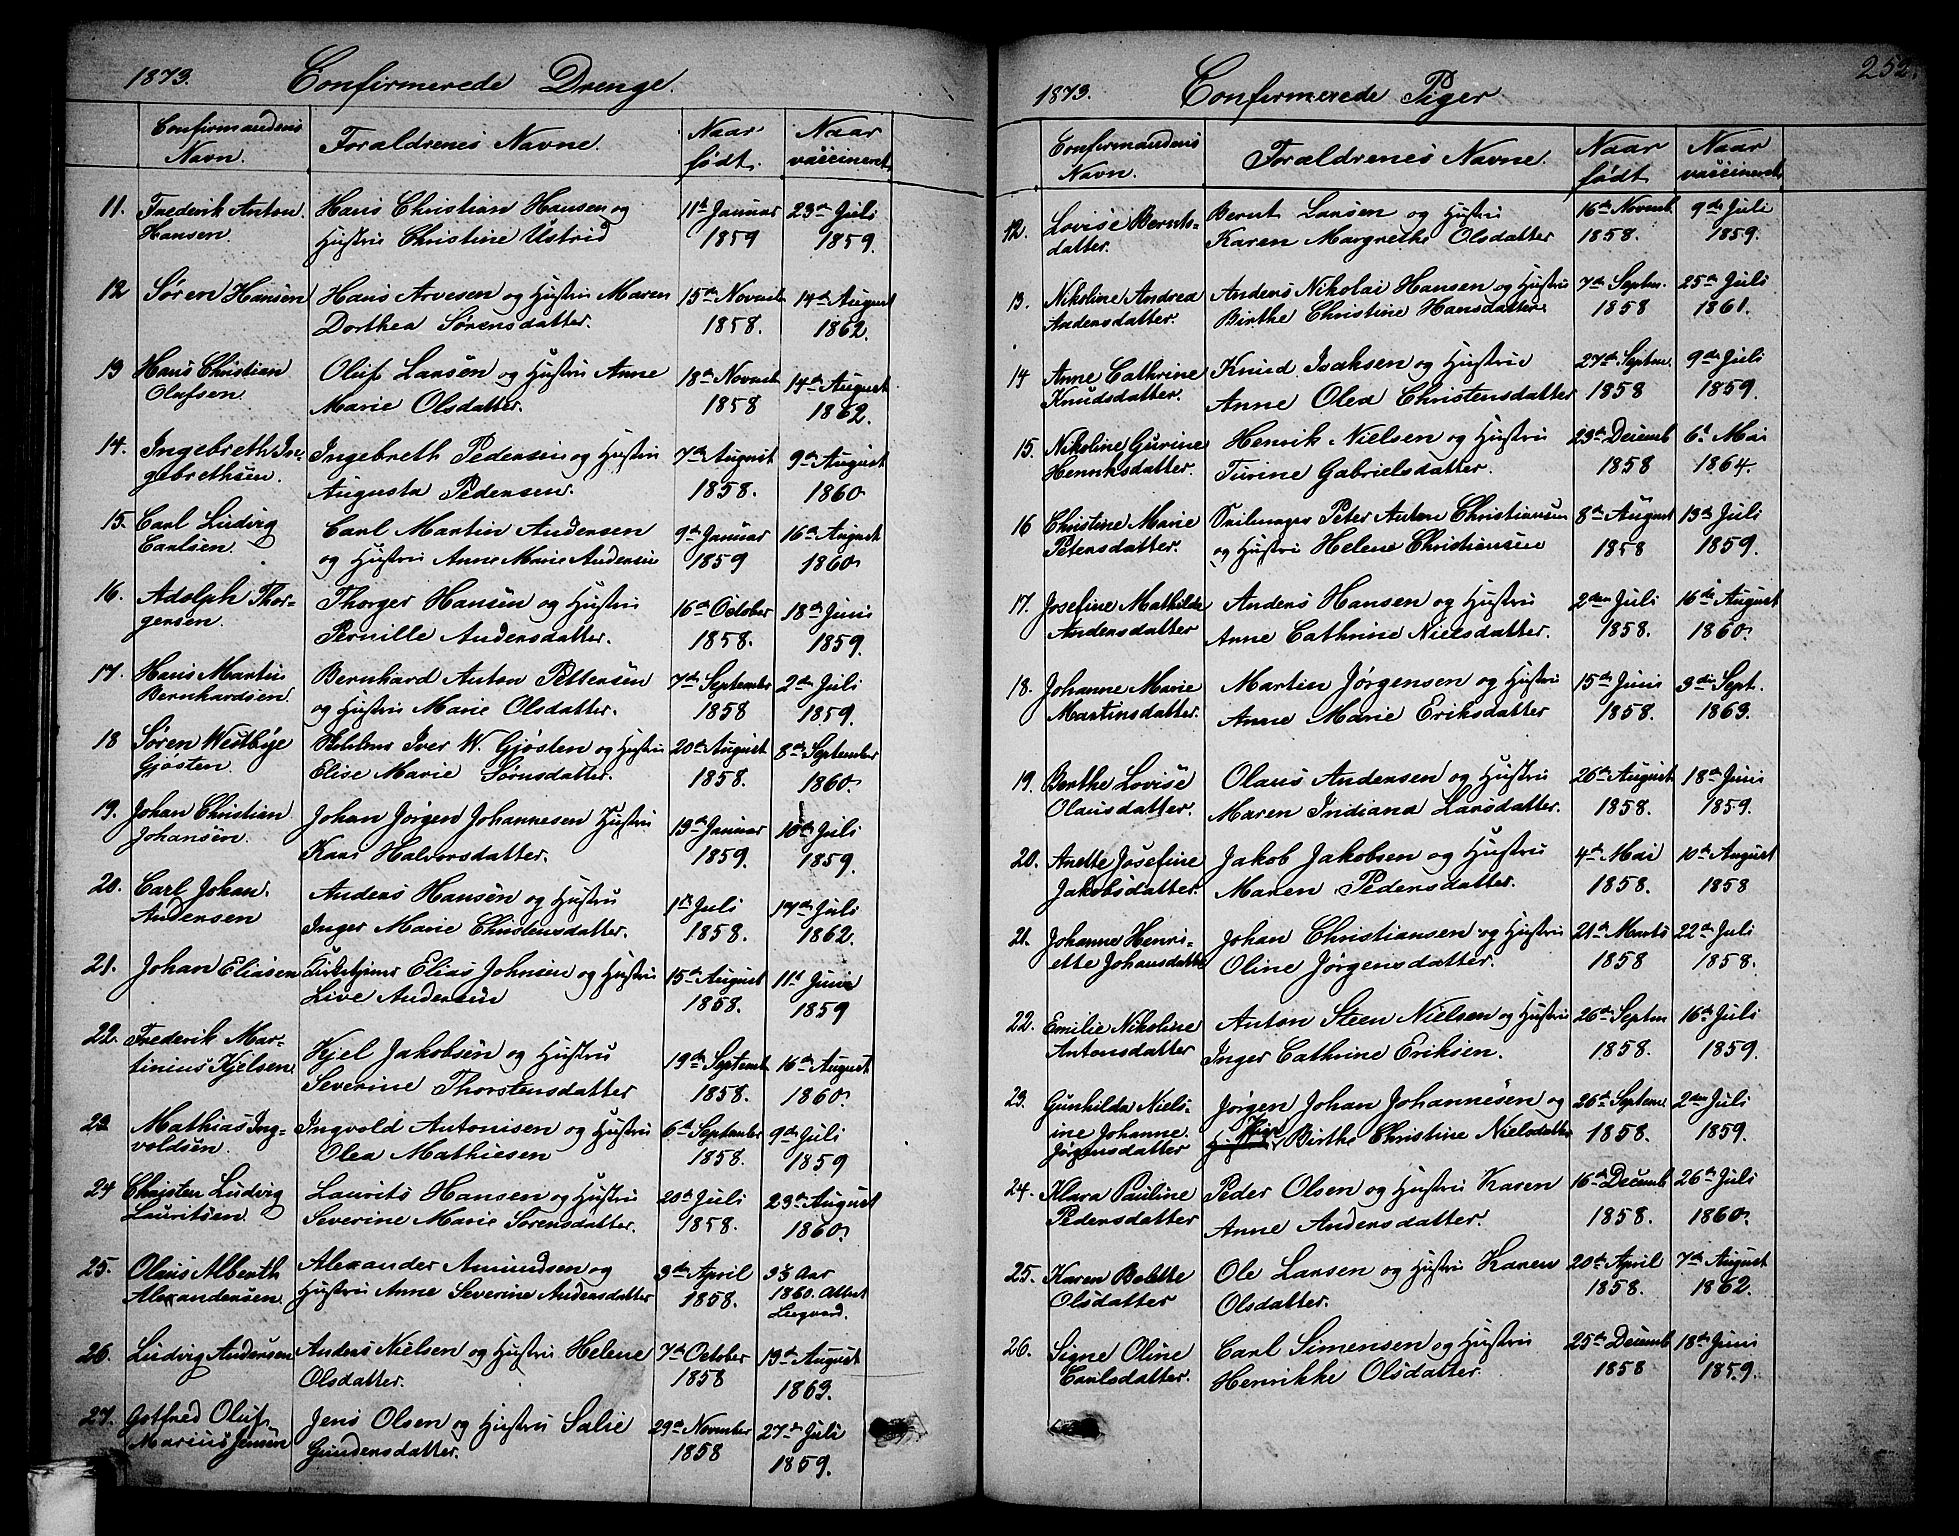 1873. Confirmerede Drenge.
Confirmandens Navn. Forældrenes Navne. Naar født. Naar vaccineret
11. Frederik Anton Hans Christian Hansen og 11te Januar 23de Juli
Hansen. Hustru Christine Ustrid 1859 1859.
12 Søren Hansen Hans Arvesen og Hustru Maren 15de Novmb 14de August
Dorthea Sørensdatter. 1858. 1862.
13 Hans Christian Oluf Larsen og Hustru Anne 18de Novmb 14de August
Olufsen. Marie Olsdatter. 1858 1862.
14. Ingebreth In- Ingebreth Pedersen og Hustru 7de August 9de August
gebrethsen. Augusta Pedersen. 1858. 1860
15. Carl Ludvig Carl Martin Andersen 9de Januar 16de August
Carlsen. og Hustru Anne Marie Andersen 1859 1860
16. Adolph Thor- Thorger Hansen og Hustru 16de October 18de Juni
gersen. Pernille Andersdatter. 1858. 1859.
17. Hans Martin Bernhard Anton Pettersen 7de September 2de Juli
Bernhardsen. og Hustru Marie Olsdatter. 1858 1859.
18 Søren Westbye Iver W. Gjøsten og Hustru 20de August 8de September
Gjøsten. Elise Marie Sørnsdatter. 1858. 1860.
19. Johan Christian Johan Jørgen Johannesen Hustru 19de Januar 10de Juli
Johansen. Kaas Halvorsdatter. 1859. 1859.
20. Carl Johan. Anders Hansen og Hustru 1ste Juli 17de Juli
Andersen Inger Marie Christensdatter. 1858. 1862.
21. Johan Eliasen Kirketjener Elias Johnsen og Hustru 15de August 11te Juni
Live Andersen 1858. 1859
22. Frederik Mar- Kjel Jakobsen og Hustru 19de Septemb 16de August
tinius Kjelsen Severine Thorstensdatter 1858. 1860.
23. Mathias Ing- Ingvold Antonisen og Hustru 6te September 9de Juli
voldsen. Olea Mathiesen 1858. 1859
24 Christen Ludvig Laurits Hansen og Hustru 20de Juli 23de August
Lauritsen. Severine Marie Sørensdatter. 1858. 1860.
25. Olaus Alberth Alexander Amundsen og 3de April 3/5 Aar
Alexandersen. Hustru Anne Severine Andersdatter 1858. 1860. Attest
26. Ludvig Andersen Anders Nielsen og Hustru Helene 7de October 13de August
Olsdatter. 1858 1863.
27. Gotfred Oluf Jens Olsen og Hustru Salie 29de November 27de Juli
Marius Jensen Gundersdatter. 1858 1859.
1873. Confirmerede Piger 252.
Confirmandens Navn. Forældrenes Navne. Naar født. Naar vaccineret
12. Lovise Bernts- Bernt Larsen og Hustru 16de Novemb. 9de Juli
datter. Karen Margrethe Olsdatter 1858. 1859.
13. Nikoline Andrea Anders Nikolai Hansen og Hustru 7de Septem. 25de Juli
Andersdatter. Birthe Christine Hansdatter. 1858 1861.
14 Anne Cathrine Knud Isaksen og Hustru 27de Septem. 9de Juli
Knudsdatter. Anne Olea Christensdatter 1858 1859.
15. Nikoline Gurine Henrik Nielsen og Hustru 23de Decemb 6te Mai
Henriksdatter. Turine Gabrielsdatter. 1858 1864.
16 Christine Marie Seilmager Peter Anton Christiansen 8de August 13de Juli
Petersdatter. og Hustru Helene Christiansen 1858 1859.
17. Josefine Mathilde Anders Hansen og Hustru 2den Juli 16de August
Andersdatter Anne Cathrine Nielsdatter. 1858. 1860.
18. Johanne Marie Martin Jørgensen og Hustru 15de Juni 3die Sept.
Martinsdatter. Anne Marie Eriksdatter 1858. 1863.
19. Berthe Lovise Olaus Andersen og Hustru 26de August 18de Juni
Olausdatter. Maren Indiana Larsdatter. 1858. 1859.
20. Anette Josefine Jakob Jakobsen og Hustru 4de Mai 10de August
Jakobsdatter. Maren Pedersdatter. 1858. 1858
21. Johanne Henri- Johan Christiansen og Hustru 21de Marts 22de Juli
ette Johansdatter Oline Jørgensdatter. 1858 1858.
22. Emilie Nikoline Anton Steen Nielsen og Hustru 26de Septem 16de Juli
Antonsdatter Inger Cathrine Eriksen. 1858. 1859.
23. Gunhilda Niels- Jørgen Johan Johannesen og 26de Septem. 2den Juli
ine Johanne. Pige Birthe Christine Nielsdatter 1858. 1859.
Jørgensdatter
24. Klara Pauline Peder Olsen og Hustru Karen 16de Decemb 26de Juli
Pedersdatter Anne Andersdatter. 1858. 1860.
25. Karen Bolette Ole Larsen og Hustru Karen 20de April 7de August
Olsdatter Olsdatter. 1858. 1862.
26. Signe Oline Carl Simensen og Hustru 25de Decemb 18de Juni
Carlsdatter. Henrikke Olsdatter. 1858 1859.